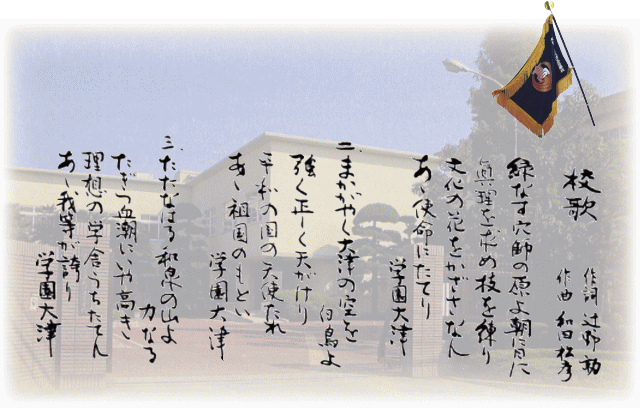 校歌
作詞 辻野
作曲 和田 松彦
緑なす穴師の原よ朝に
眞理を求め技を練り
文化の花をかざさなん
あゝ使命にたてり
学園大津
二、まかがやく大津の空を
白鳥よ
強く正しく天がけり
平和の国の天使たれ
あゝ祖国のもとい
学園大津
三、たたなはる和泉の山よ
力なる
たぎつ血潮にいや高き
理想の学舎うちたてん
あゝ我等が誇り
学園大津